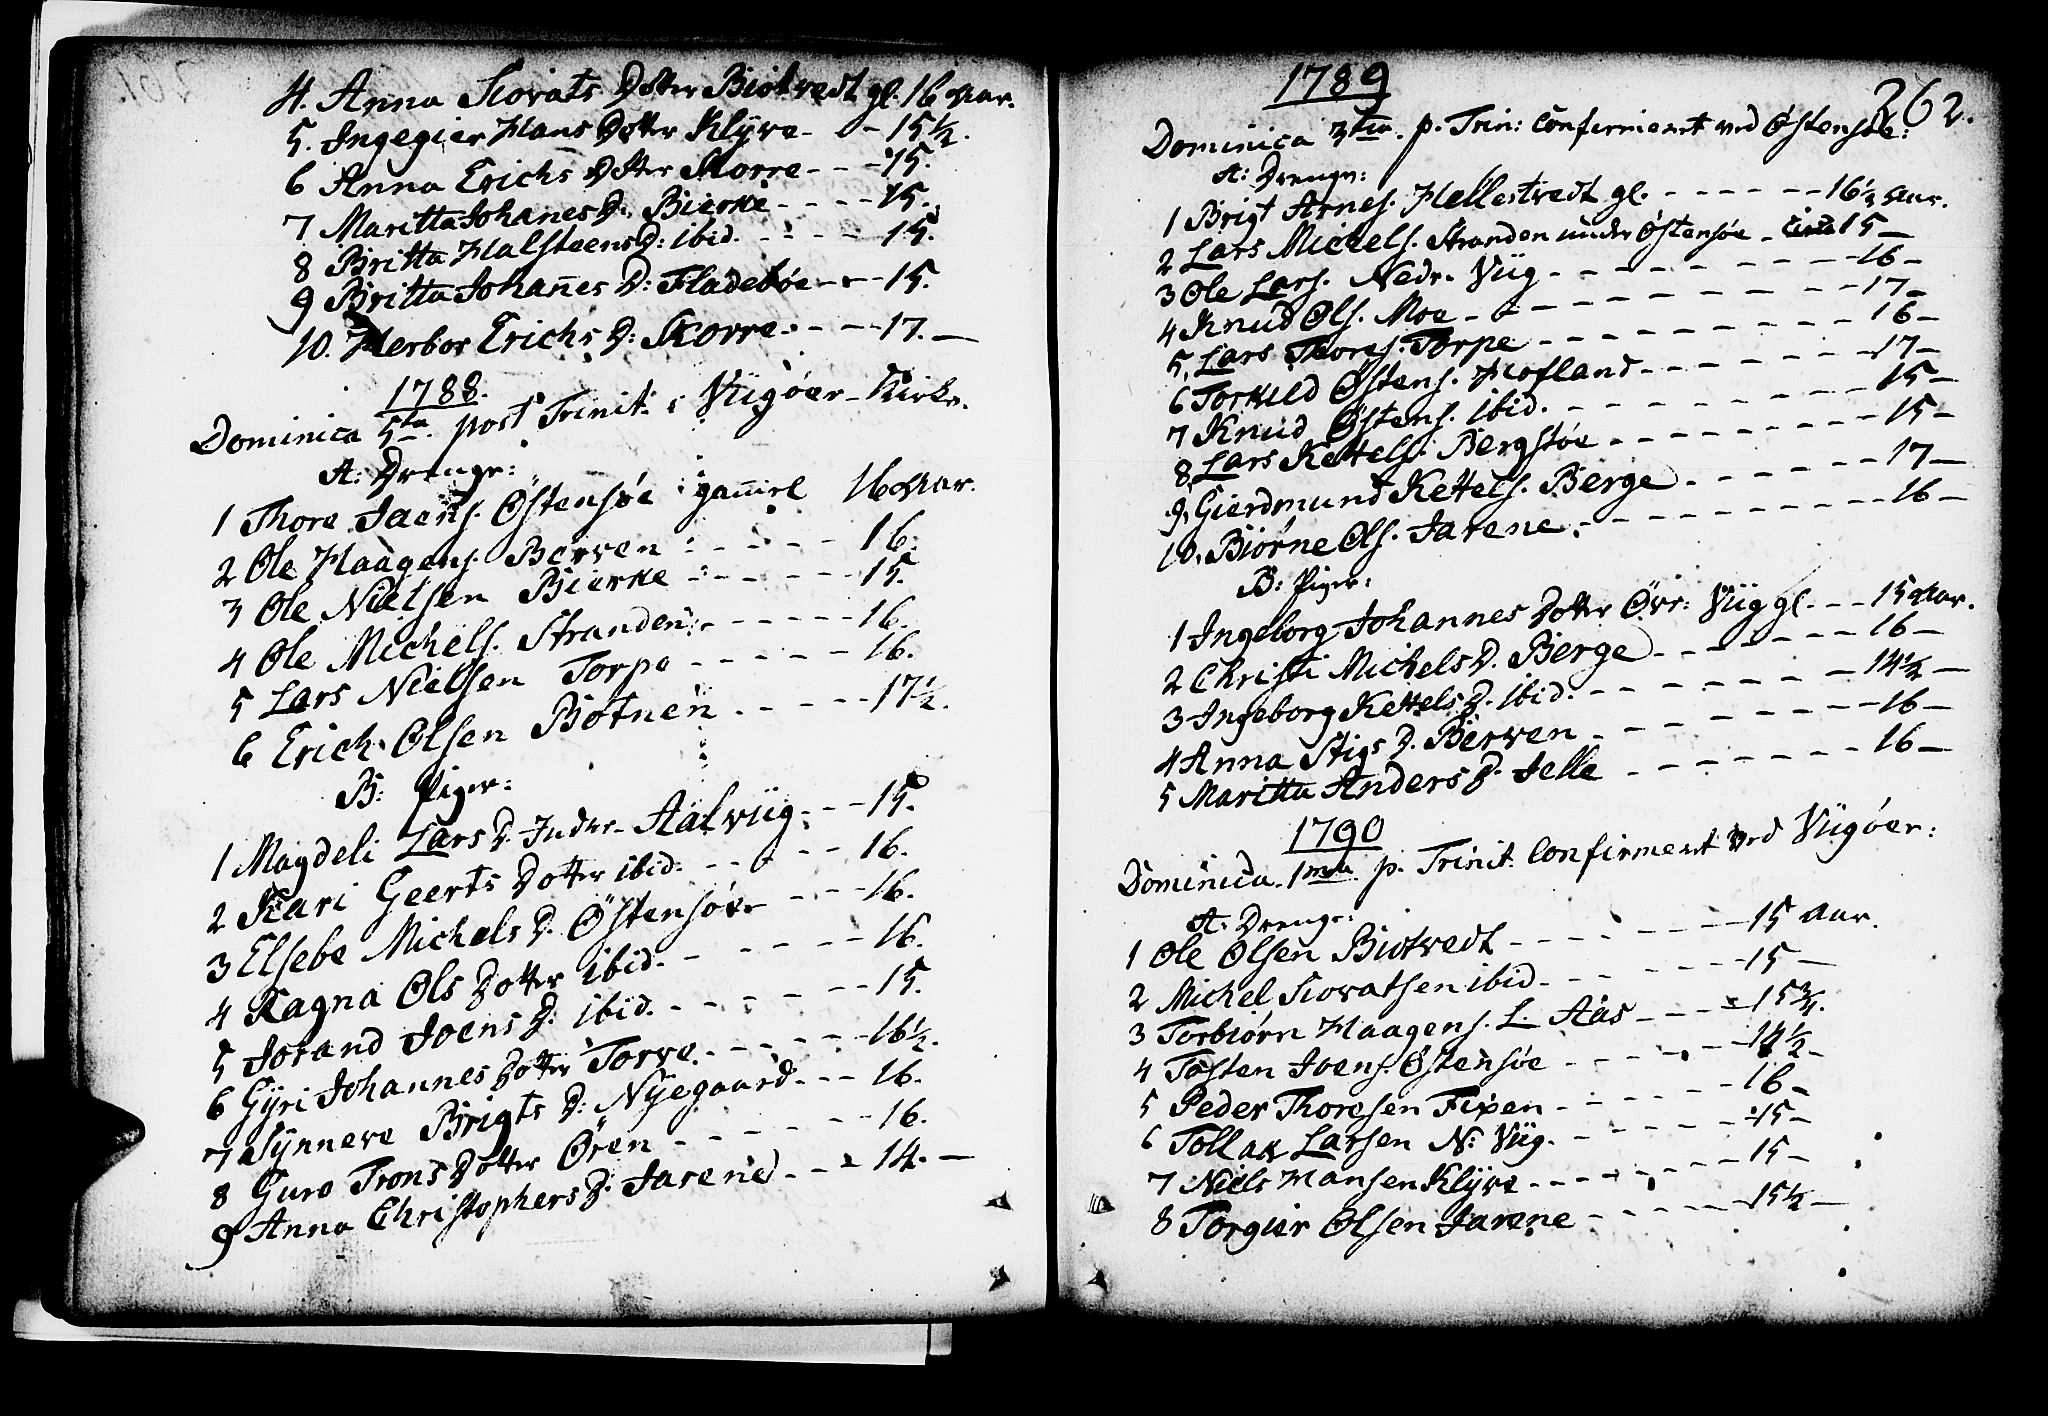 4. Anna Siovats Dotter Biotvedt gl. 16 Aar.
5. Ingegier Hans Dotter Klyve - - - 15 1/2.
6 Anna Erichs Dotter Skorre - - - 15.
7 Maritta Johanes D: Bierke - - - - 15.
8 Britta Halsteens D: ibid. - - - - 15.
9 Britta Johannes D: Fladebøe - - - 15.
10. Herbor Erichs D: Skorre - - - - 17. -
1788.
Dominica 5ta. post Trinit: i Viigøer-Kirke.
A: Drenge:
1 Thore Joens. Østensøe gammel 16 Aar.
2 Ole Haagens. Berven - - - - - 16.
3 Ole Nielsen Bierke - - - - - 15.
4 Ole Michels. Stranden - - - - - - 16.
5 Lars Nielsen Torpe - - - - - 16.
6 Erich Olsen Botnen - - - - - 17 1/2.
B: Piger:
1 Magdeli Lars D. Indre-Aalviig - - - 15.
2 Kari Geerts Dotter ibid. - - - - - 16.
3 Elsebe Michels D. Østensøe - - - 16.
4 Ragna Ols Dotter ibid. - - - - - - 16.
5 Jorand Joens D: ibid. - - - - - - 15.
6 Gyri Johannes Dotter Torve - - - - - 16 1/2.
7 Synneve Brigts D: Nyegaard - - - 16.
8 Guro Trons Dotter Øren - - - - - - 16.
9 Anna Christophers D. Jarene - - - 14. -
262.
1789
Dominica 3tia. p. Trin: Confirmeert ved Østensøe:
A: Drenge:
1 Brigt Arnes. Hellestvedt gl. - - - - - - 16 1/2 Aar.
2 Lars Michels. Stranden under Østensøe - circa 15 -
3 Ole Lars. Nedr. Viig - - - - - - - - 16 -
4 Knud Ols. Moe - - - - - - - - - - 17 -
5. Lars Thores. Torpe - - - - - - - - 16 -
6 Torkild Østens. Hofland - - - - - - - 17 -
7 Knud Østens. ibid. - - - - - - - - - 15 -
8 Lars Kettels. Bergstøe - - - - - - - - 15 -
9. Gierdmund Kettels. Berge - - - - - - 17 -
10. Biørne Ols. Jarene - - - - - - - - - 16 -
B: Piger:
1 Ingeborg Johannes Dotter Øvr: Viig gl. - - - 15 Aar.
2 Christi Michels D. Berge - - - - - - - 16 -
3 Ingeborg Kettels D. ibid. - - - - - - - - 14 1/2 -
4 Anna Stigs D. Berven - - - - - - - - 16 -
5 Maritta Anders D. Selle - - - - - - - - 16 -
1790
Dominica 1ma p. Trinit: Confirmeert ved Viigøer:
A: Drenge:
1 Ole Olsen Biotvedt - - - - - - - - 15 Aar.
2 Michel Siovatsen ibid - - - - - - - 15 -
3 Torbiørn Haagens. L. Aas - - - - 15 3/4.
4 Tosten Joens. Østensøe - - - - - - - 14 1/2 -
5 Peder Thoresen Fixen - - - - - - - 16 -
6 Tollak Larsen N: Viig. - - - - - - - 15 -
7 Niels Hansen Klyve - - - - - - - - 15 -
8 Torgier Olsen Jarene - - - - - - - 15 1/2 -